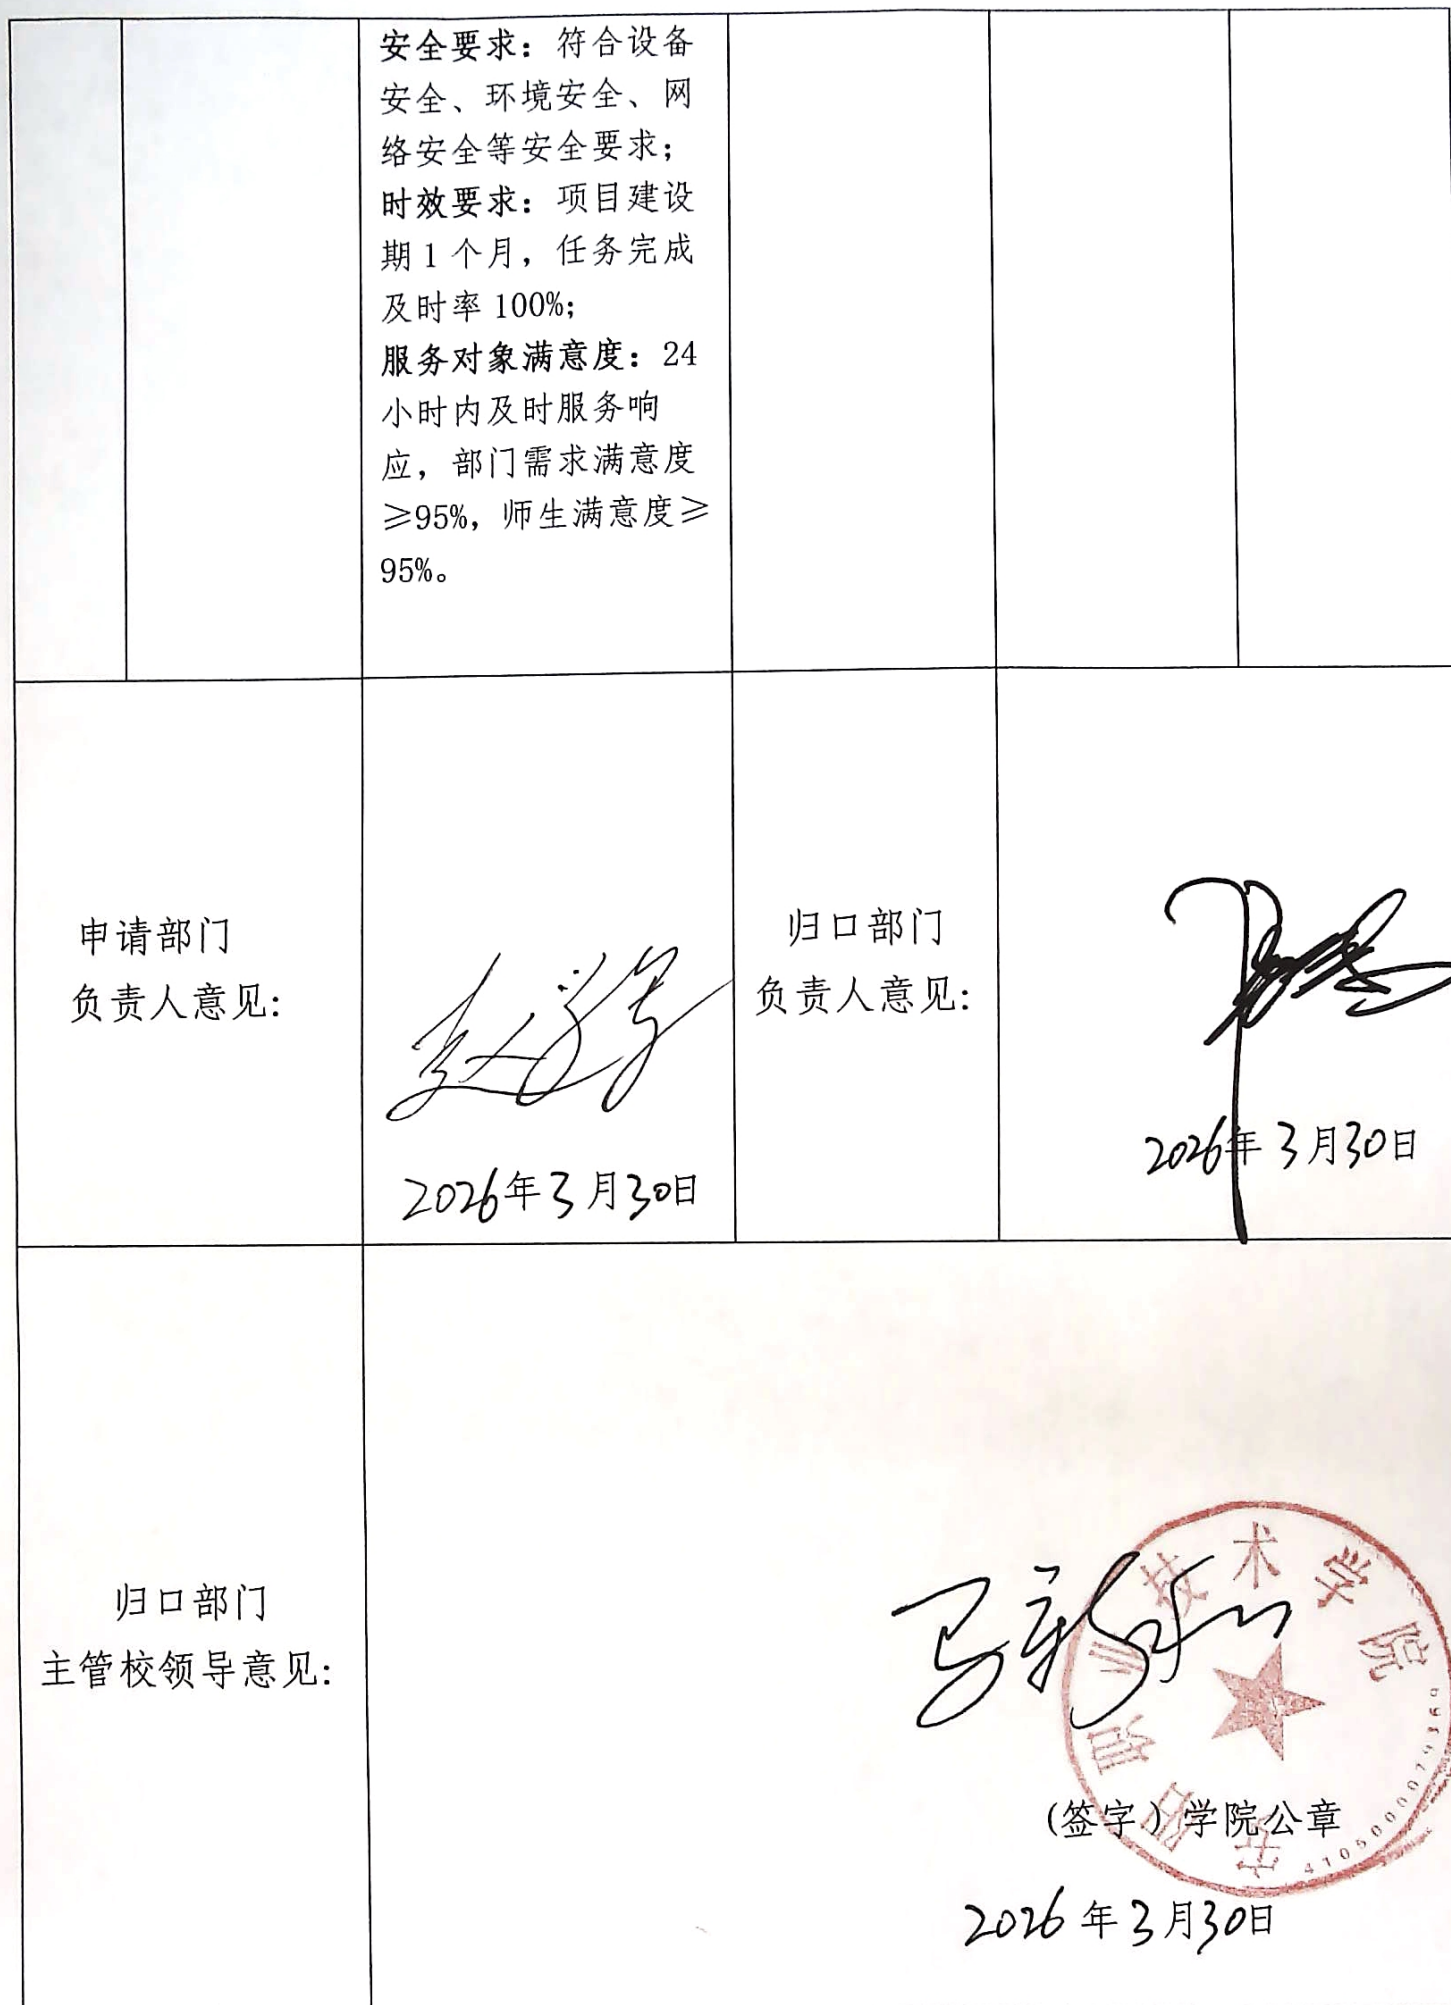 安全要求：符合设备
安全、环境安全、网
络安全等安全要求；
时效要求：项目建设
期1个月，任务完成
及时率 100%；
服务对象满意度：24
小时内及时服务响
应，部门需求满意度
≥95%，师生满意度≥
95%。
申请部门
负责人意见:
2026年3月30日
归口部门
负责人意见:
2026年3月30日
归口部门
主管校领导意见:
技术学院
(签字) 学院公章
2026年3月30日